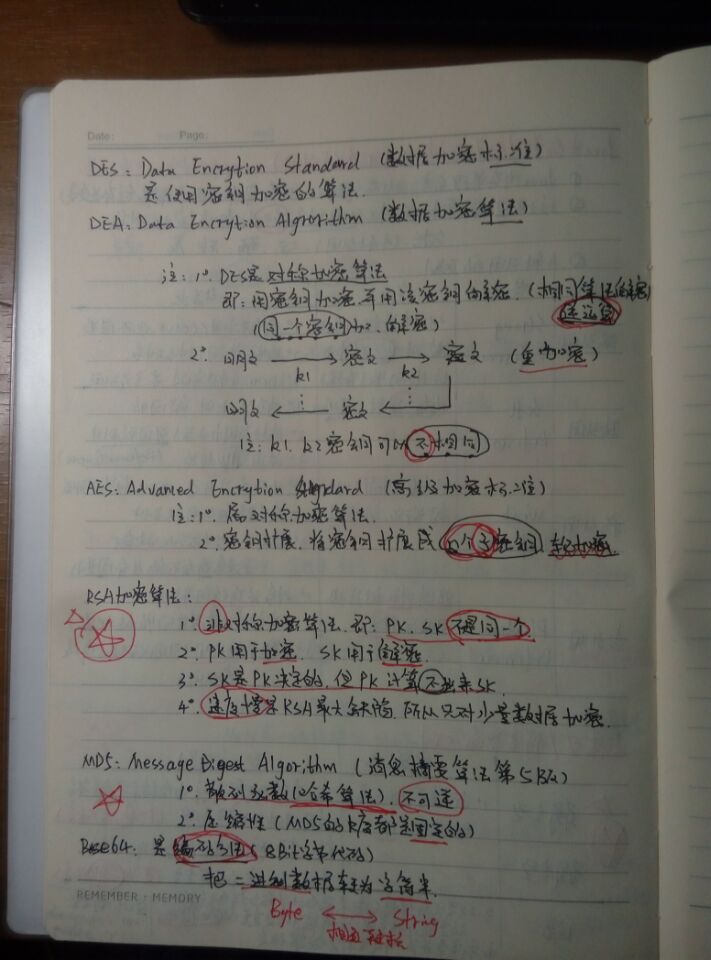 Date: Page:
DES: Data Encrytion Standard (数据加密标准)
是使用密钥加密的算法.
DEA: Data Encrytion Algrorithm (数据加密算法)
注: 1°. DES是对称加密算法
即: 用密钥加密并用该密钥解密. (相同算法解密)
逆运算
(同一个密钥加、解密)
2°. 明文 → 密文 → 密文 (重加密)
k1 k2
明文 ← 密文 ←
注: k1. k2密钥可以不相同
AES: Advanced Encrytion Standard (高级加密标准)
注: 1°. 属对称加密算法.
2°. 密钥扩展. 将密钥扩展成n个子密钥. 轮加密.
RSA加密算法:
1°. 非对称加密算法. 即: PK. SK不是同一个
2°. PK用于加密. SK用于解密.
3°. SK是PK决定的, 但PK计算不出来SK.
4°. 速度慢是RSA最大缺陷, 所以只对少量数据加密.
MD5: Message Digest Algorithm (消息摘要算法第5版)
1°. 散列函数(哈希算法), 不可逆
2°. 压缩性 (MD5的长度都是固定的)
Base64: 是编码方法 (8Bit字节代码)
把二进制数据转为字符串.
REMEMBER · MEMORY
Byte ↔ String
相互转换